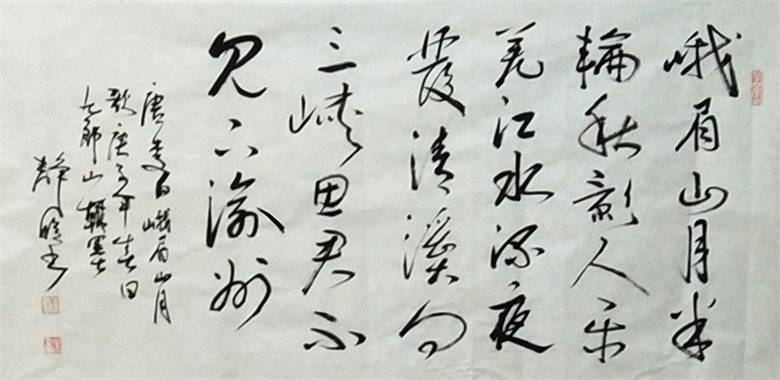 峨眉山月半
輪秋影入平
羌江水流夜
發清溪向
三峽思君不
見下渝州
唐李白峨眉山月
歌庚子年春日
九郎山
靜